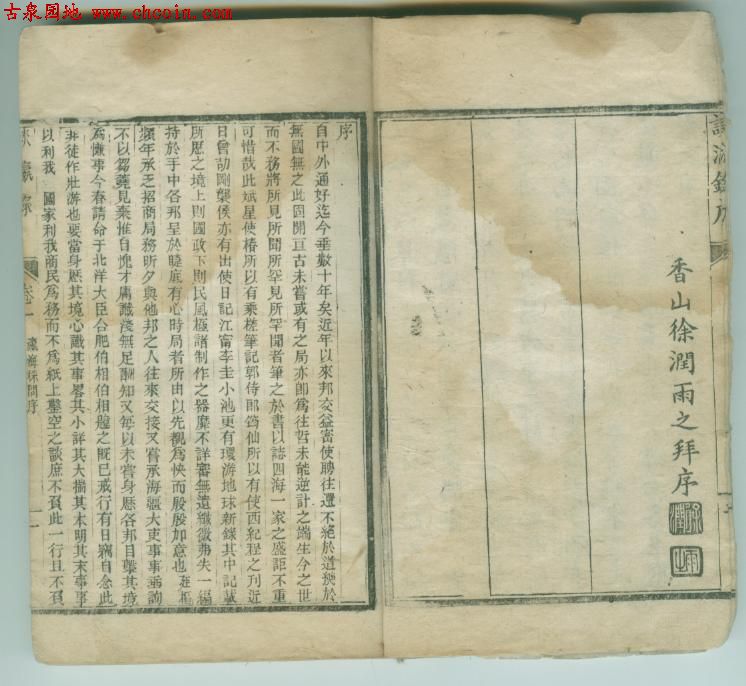 古泉园地 www.chcoin.com
香山徐潤雨之拜序
徐潤
雨之
序
自中外通好迄今垂數十年矣近年以來邦交益密使聘往還不絕於道幾於
無國無之此固開亘古未嘗或有之局亦卽爲往哲未能逆計之端生今之世
而不務將所見所聞所罕見所罕聞者筆之於書以誌四海一家之盛詎不重
可惜哉此斌星使椿所以有乘槎筆記郭侍郎筠仙所以有使西紀程之刊近
日曾劼剛襲侯亦有出使日記江甯李圭小池更有環游地球新錄其中記載
所歷之境上則國政下則民風極諸制作之器靡不詳審無遺纖微弗失一編
持於手中各邦呈於睫底有心時局者所由以先覩爲快而殷殷如意也廷樞
頻年承乏招商局務昕夕與他邦之人往來交接又嘗承海疆大吏事事下詢
不以芻蕘見棄惟自愧才庸識淺無足酬知又每以未嘗身歷各邦目擊其境
爲慊事今春請命于北洋大臣合肥伯相伯相韙之旣已戒行有日竊自念此
非徒作壯游也要當身歷其境心識其事畧其小詳其大揣其本明其末事事
以利我 國家利我商民爲務而不爲紙上鑿空之談庶不負此一行且不負
卷一
瀛海採問序
一